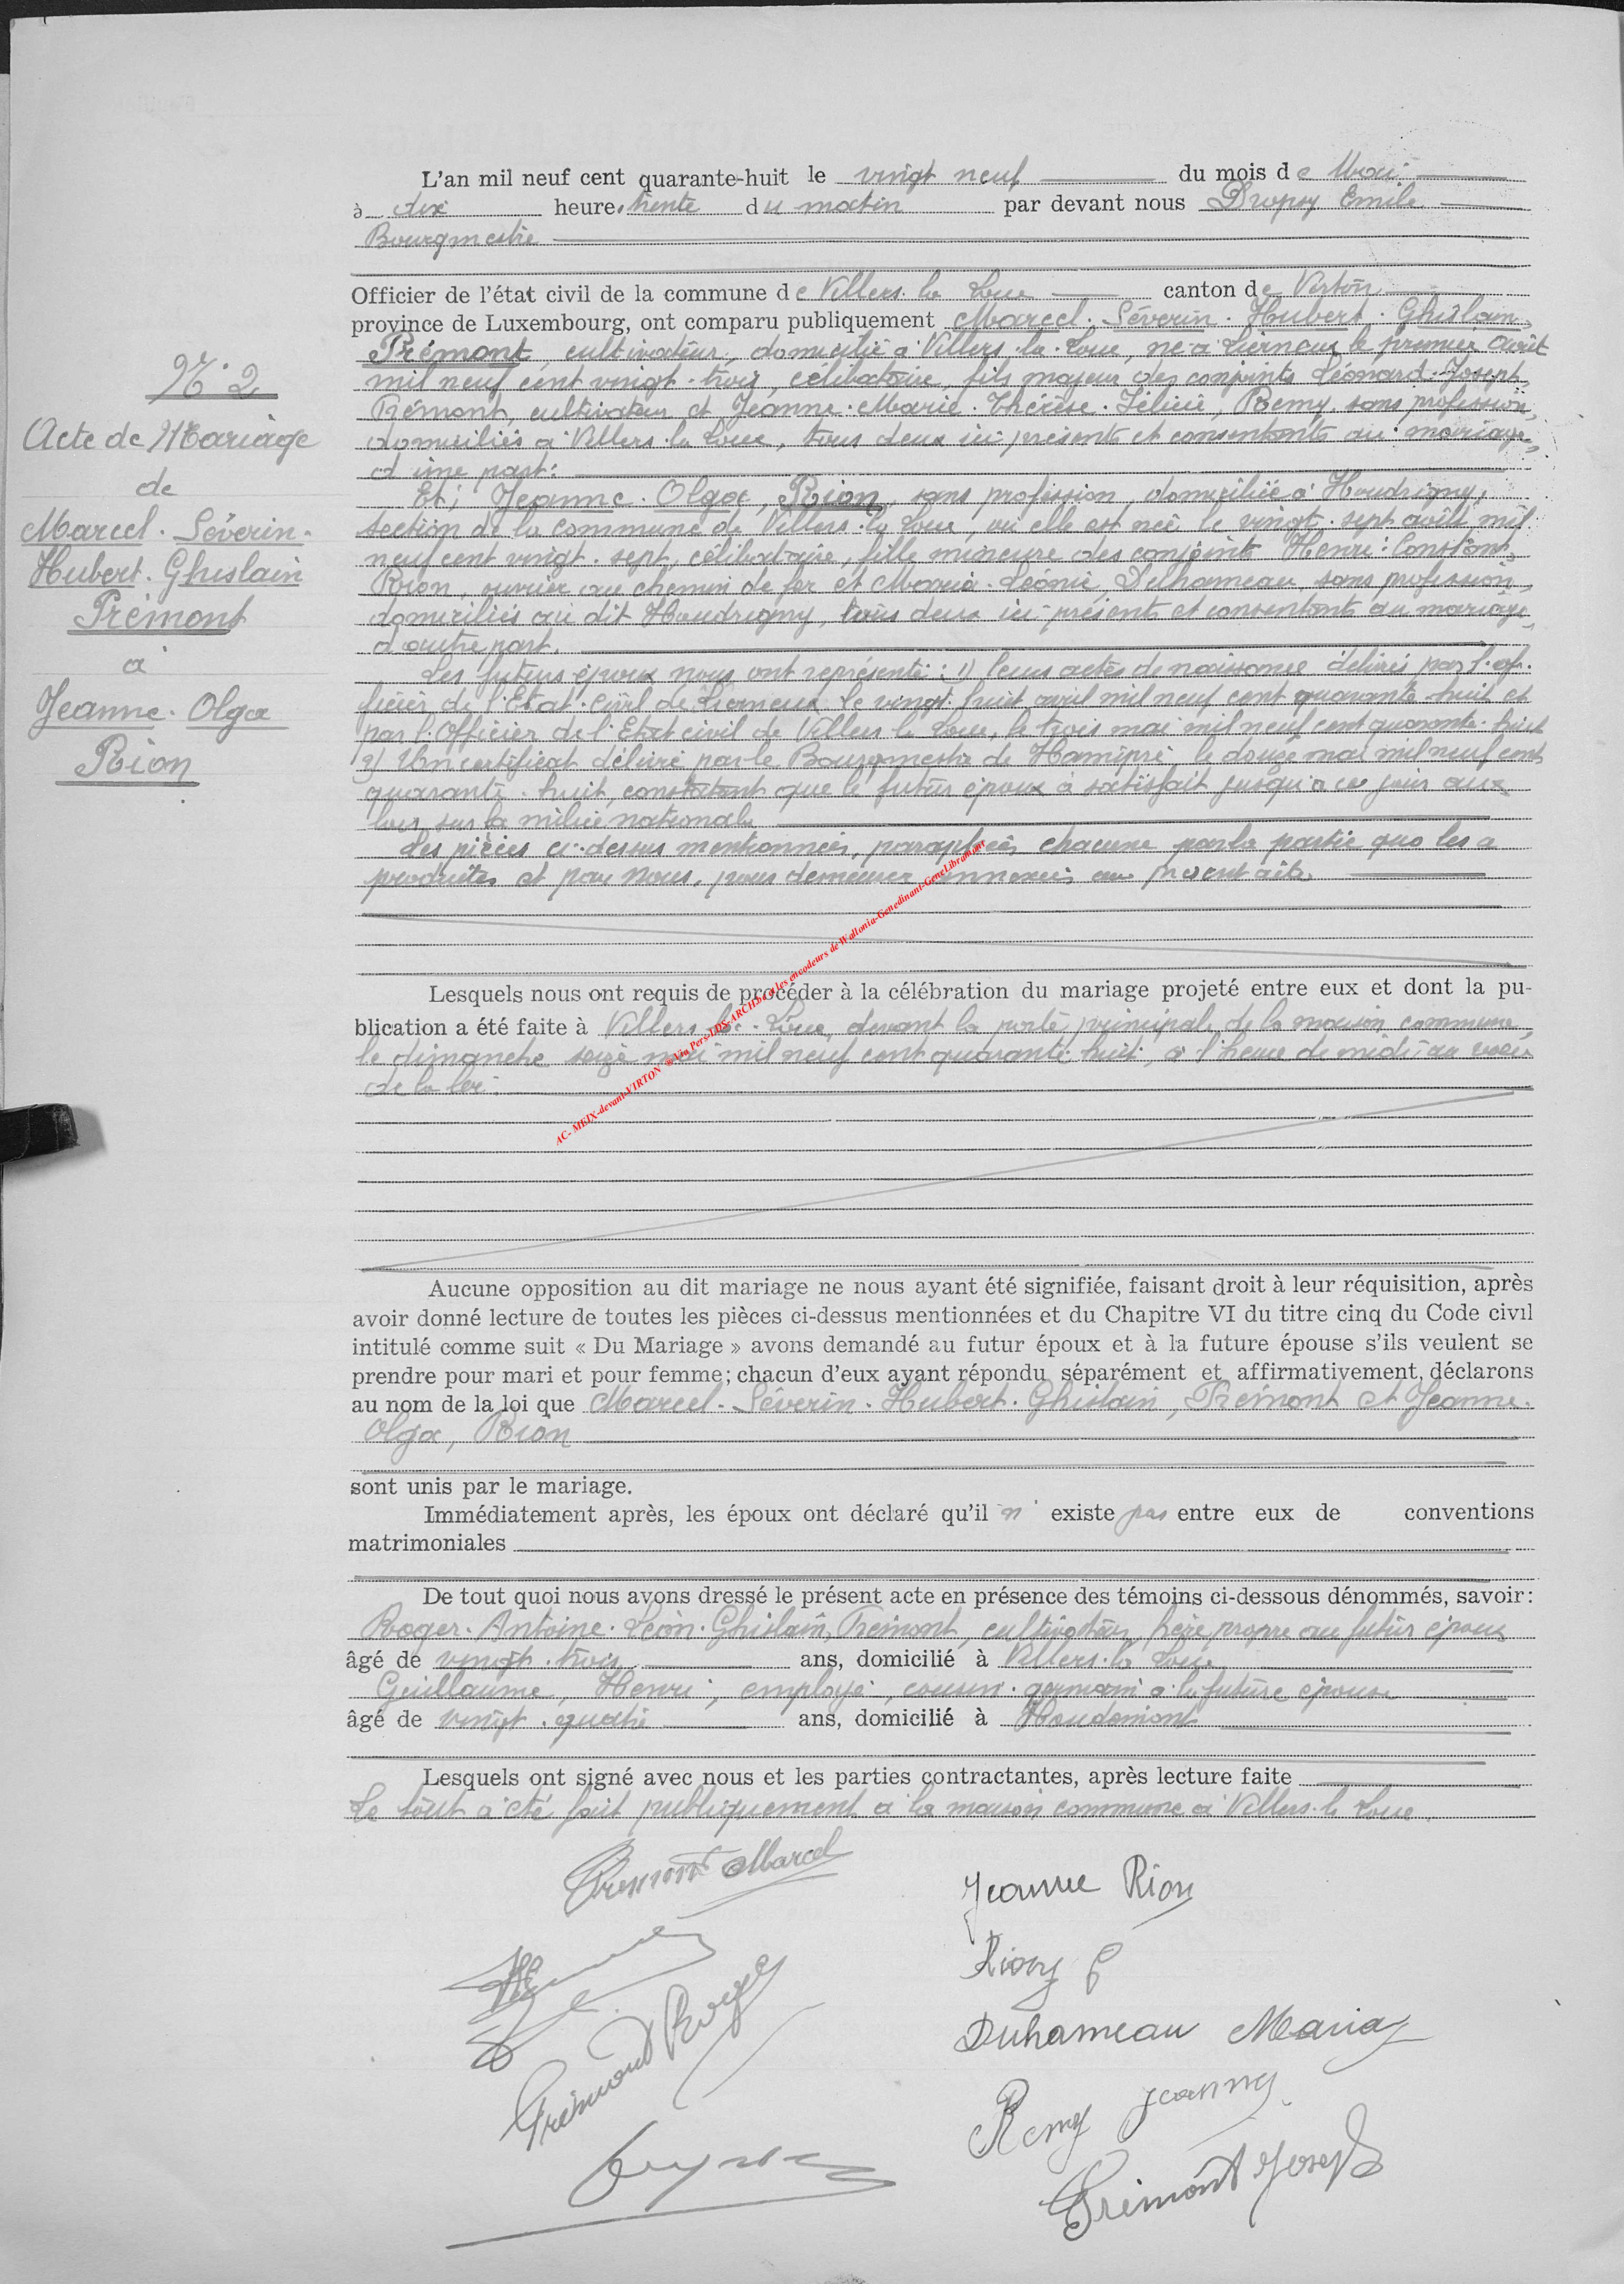 L'an mil neuf cent quarante-huit le vingt neuf du mois de Mai
à dix heure trente du matin par devant nous Dropsy Emile
Bourgmestre
Officier de l'état civil de la commune de Villers-la-Loue canton de Virton
province de Luxembourg, ont comparu publiquement Marcel-Séverin-Hubert-Ghislain,
Prémont, cultivateur, domicilié à Villers-la-Loue, né à Lierneux le premier août
mil neuf cent vingt-trois, célibataire, fils majeur des conjoints Léonard-Joseph,
Prémont, cultivateur et Jeanne-Marie-Thérèse-Félicie, Remy, sans profession,
domiciliés à Villers-la-Loue, tous deux ici présents et consentants au mariage,
d'une part:
Et; Jeanne-Olga, Rion, sans profession, domiciliée à Houdrigny,
section de la commune de Villers-la-Loue, où elle est née le vingt-sept août mil
neuf cent vingt-sept, célibataire, fille mineure des conjoints Henri-Constant,
Rion, ouvrier au chemin de fer et Maria-Léonie, Duhameau, sans profession,
domiciliés au dit Houdrigny, tous deux ici présents et consentants au mariage,
d'autre part.
Les futurs époux nous ont représenté: 1) leurs actes de naissance délivrés par l'of-
ficier de l'Etat-Civil de Lierneux le vingt-huit avril mil neuf cent quarante-huit et
par l'Officier de l'Etat civil de Villers-la-Loue, le trois mai mil neuf cent quarante-huit
2) Un certificat délivré par le Bourgmestre de Hamipré, le douze mai mil neuf cent
quarante-huit, constatant que le futur époux a satisfait jusqu'à ce jour aux
lois sur la milice nationale
Les pièces ci-dessus mentionnées, paraphées chacune par la partie qui les a
produites et par nous, pour demeurer annexées au présent acte.
Lesquels nous ont requis de procéder à la célébration du mariage projeté entre eux et dont la pu-
blication a été faite à Villers-la-Loue, devant la porte principale de la maison commune,
le dimanche seize mai mil neuf cent quarante-huit, à l'heure de midi au vœu
de la loi.
Aucune opposition au dit mariage ne nous ayant été signifiée, faisant droit à leur réquisition, après
avoir donné lecture de toutes les pièces ci-dessus mentionnées et du Chapitre VI du titre cinq du Code civil
intitulé comme suit « Du Mariage » avons demandé au futur époux et à la future épouse s'ils veulent se
prendre pour mari et pour femme; chacun d'eux ayant répondu séparément et affirmativement, déclarons
au nom de la loi que Marcel-Séverin-Hubert-Ghislain, Prémont et Jeanne-
Olga, Rion
sont unis par le mariage.
Immédiatement après, les époux ont déclaré qu'il n' existe pas entre eux de conventions
matrimoniales
De tout quoi nous avons dressé le présent acte en présence des témoins ci-dessous dénommés, savoir:
Roger-Antoine-Léon-Ghislain, Prémont, cultivateur, frère propre au futur époux
âgé de vingt-trois ans, domicilié à Villers-la-Loue
Guillaume, Henri, employé, cousin-germain à la future épouse
âgé de vingt-quatre ans, domicilié à Houdemont
Lesquels ont signé avec nous et les parties contractantes, après lecture faite
Le tout a été fait publiquement à la maison commune à Villers-la-Loue.
N° 2
Acte de Mariage
de
Marcel-Séverin-
Hubert-Ghislain
Prémont
à
Jeanne-Olga
Rion
AC-MEIX-devant-VIRTON @ Via Pers-LDS-ARCH.be & les encodeurs de Wallonia-Genedinant-GeneLibramont
Prémont Marcel
Jeanne Rion
Rion
Prémont Roger
Duhameau Maria
Remy Jeanny
Prémont Joseph